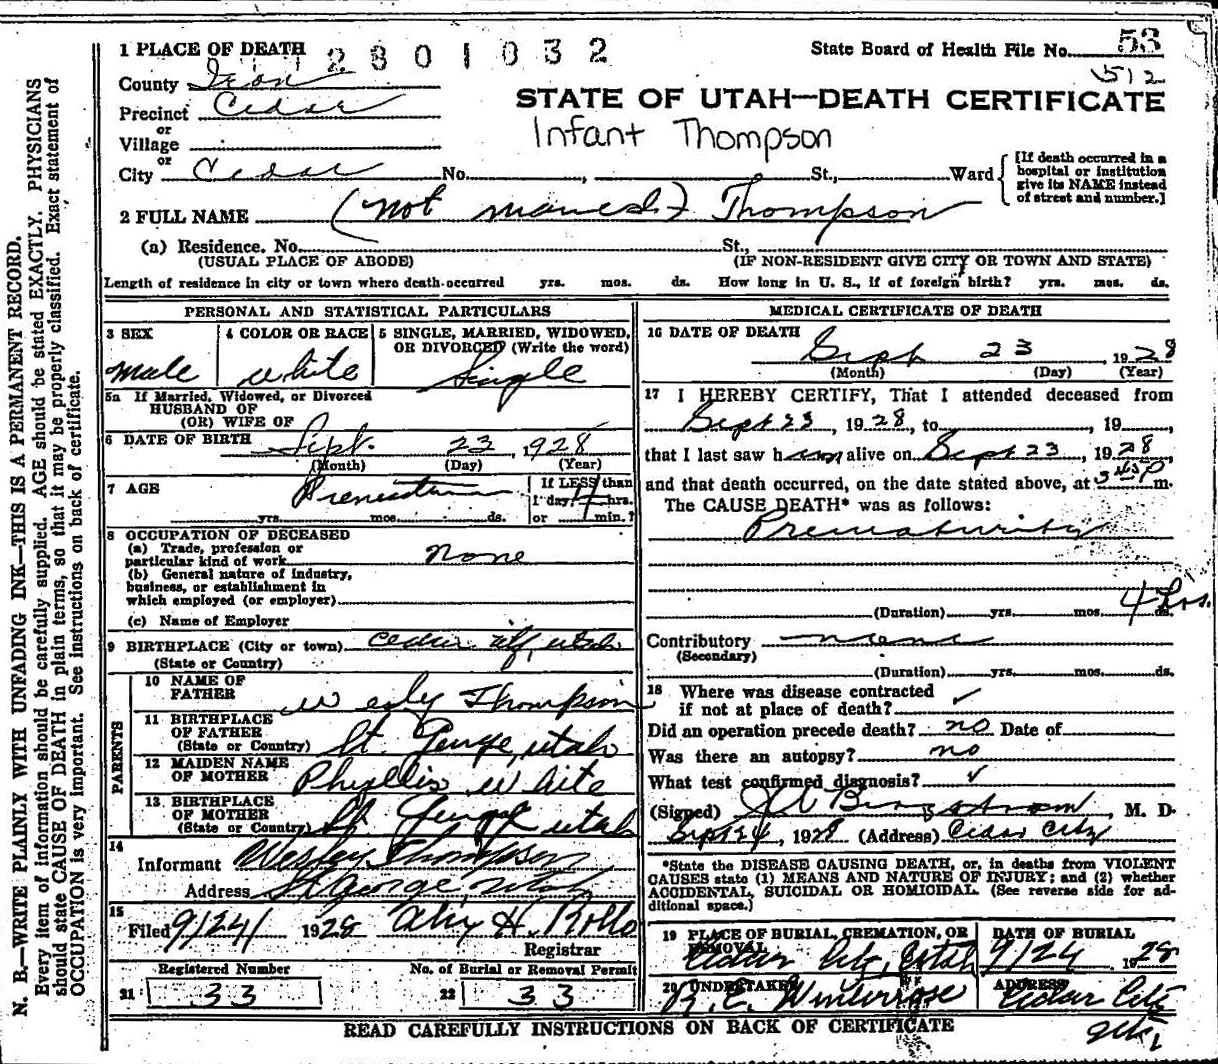 1 PLACE OF DEATH 2 8 0 1 0 3 2
State Board of Health File No. 53
512
County Iron
Precinct Cedar
or
Village
or
City Cedar No. , St., Ward
[If death occurred in a
hospital or institution
give its NAME instead
of street and number.]
STATE OF UTAH—DEATH CERTIFICATE
Infant Thompson
2 FULL NAME (not named) Thompson
(a) Residence. No. St.,
(USUAL PLACE OF ABODE) (IF NON-RESIDENT GIVE CITY OR TOWN AND STATE)
Length of residence in city or town where death occurred yrs. mos. ds. How long in U. S., if of foreign birth? yrs. mos. ds.
PERSONAL AND STATISTICAL PARTICULARS
3 SEX 4 COLOR OR RACE 5 SINGLE, MARRIED, WIDOWED,
OR DIVORCED (Write the word)
Male white Single
5a If Married, Widowed, or Divorced
HUSBAND OF
(OR) WIFE OF
6 DATE OF BIRTH Sept. 23, 1928
(Month) (Day) (Year)
7 AGE Premature If LESS than
1 day, 4 hrs.
yrs. mos. ds. or min.?
8 OCCUPATION OF DECEASED
(a) Trade, profession or
particular kind of work none
(b) General nature of industry,
business, or establishment in
which employed (or employer)
(c) Name of Employer
9 BIRTHPLACE (City or town) Cedar City, Utah
(State or Country)
PARENTS
10 NAME OF
FATHER Wesley Thompson
11 BIRTHPLACE
OF FATHER
(State or Country) St. George, Utah
12 MAIDEN NAME
OF MOTHER Phyllis White
13 BIRTHPLACE
OF MOTHER
(State or Country) St George Utah
14
Informant Wesley Thompson
Address St George Utah
15
Filed 9/24/ 1928 H. Rollo
Registrar
Registered Number No. of Burial or Removal Permit
21 33 22 33
MEDICAL CERTIFICATE OF DEATH
16 DATE OF DEATH
Sept 23, 1928
(Month) (Day) (Year)
17 I HEREBY CERTIFY, That I attended deceased from
Sept 23, 1928, to , 19 ,
that I last saw him alive on Sept 23, 1928
and that death occurred, on the date stated above, at 345P m.
The CAUSE DEATH* was as follows:
Prematurity
(Duration) yrs. mos. ds. 4 hrs.
Contributory none
(Secondary)
(Duration) yrs. mos. ds.
18 Where was disease contracted
if not at place of death? ✓
Did an operation precede death? no Date of
Was there an autopsy? no
What test confirmed diagnosis? ✓
(Signed) Bergstrom, M. D.
Sept 24, 1928 (Address) Cedar City
*State the DISEASE CAUSING DEATH, or, in deaths from VIOLENT
CAUSES state (1) MEANS AND NATURE OF INJURY; and (2) whether
ACCIDENTAL, SUICIDAL OR HOMICIDAL. (See reverse side for ad-
ditional space.)
19 PLACE OF BURIAL, CREMATION, OR
REMOVAL DATE OF BURIAL
Cedar City, Utah 9/24 1928
20 UNDERTAKER ADDRESS
R. E. Winterrose Cedar City
Utah
READ CAREFULLY INSTRUCTIONS ON BACK OF CERTIFICATE
N. B.—WRITE PLAINLY WITH UNFADING INK—THIS IS A PERMANENT RECORD.
Every item of information should be carefully supplied. AGE should be stated EXACTLY. PHYSICIANS
should state CAUSE OF DEATH in plain terms, so that it may be properly classified. Exact statement of
OCCUPATION is very important. See instructions on back of certificate.